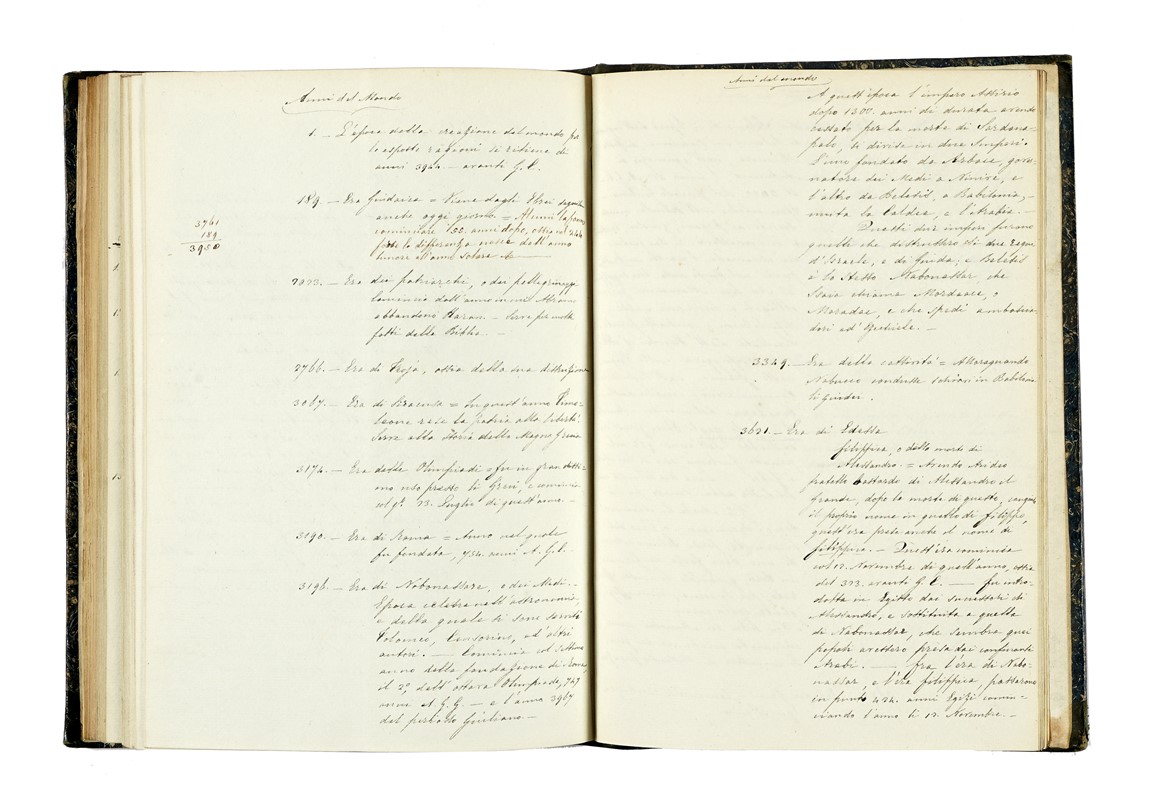 Anni del Mondo
1. — L'epoca della creazione del mondo per
le esposte ragioni si ritiene di
anni 3944 — avanti G. C.
189. — Era Giudaica = Viene dagli Ebrei seguita
anche oggi giorno. = Alcuni la fanno
cominciare 152 anni dopo, ossia nel 3144
forse la differenza nasce dall'anno
lunare all'anno Solare
3761
189
3950
2023. — Era dei patriarchi, o dei pellegrinaggi
Comincia dall'anno in cui Abramo
abbandonò Haran. — Serve per molti
fatti della Bibbia —
2766. — Era di Troja, ossia della sua distruzione
3067. — Era di Siracusa = In quest'anno Timo-
leone rese la patria alla libertà.
Serve alla Storia della Magna Grecia
3174. — Era delle Olimpiadi = fu in gran dotti-
mo uso presso li Greci, e comincia
col gº 23. Luglio di quest'anno. —
3190. — Era di Roma = Anno nel quale
fu fondata, 754. anni A. G. C. —
3196. — Era di Nabonassare, o dei Medi. —
Epoca celebre nell'astronomia,
e della quale si sono serviti
Tolomeo, Censorino, ed altri
autori. — Comincia col settimo
anno della fondazione di Roma
il 2º dell'ottava Olimpiade, 747
avan A. G. C. — e l'anno 3967
del periodo Giuliano. —
Anni dal mondo
A quest'epoca l'impero Assirio
dopo 1300. anni di durata avendo
cessato per la morte di Sardana-
palo, si divise in due Imperi.
L'uno fondato da Arbace, gover-
natore dei Medi a Ninive, e
l'altro da Belesil, a Babilonia,
unita la Caldea, e l'Arabia. —
Questi due imperi furono
quelli che distrussero li due Regni
d'Israele, e di Giuda; e Belesil
è lo stesso Nabonassar che
Isaia chiama Mordaore, o
Moradac, e che spedì ambascia-
dori ad Ezechiele. —
3349. — Era della cattività = Allorquando
Nabucco condusse schiavi in Babilonia
li Giudei.
3621. — Era di Edessa
filippica, o della morte di
Alessandro = Avendo Arideo
fratello bastardo di Alessandro il
Grande, dopo la morte di questo, cangiato
il proprio nome in quello di filippo,
quest'era prese anche il nome di
filippica. — Quest'era comincia
col 12. Novembre di quell'anno, ossia
del 323. avanti G. C. — fu intro-
dotta in Egitto dai successori di
Alessandro, e sostituita a quella
di Nabonassar, che sembra quei
popoli avessero presa dai confinanti
Arabi. — fra l'era di Nabo-
nassar, e l'era filippica, passarono
in punto 424. anni Egizi comin-
ciando l'anno li 12. Novembre. —